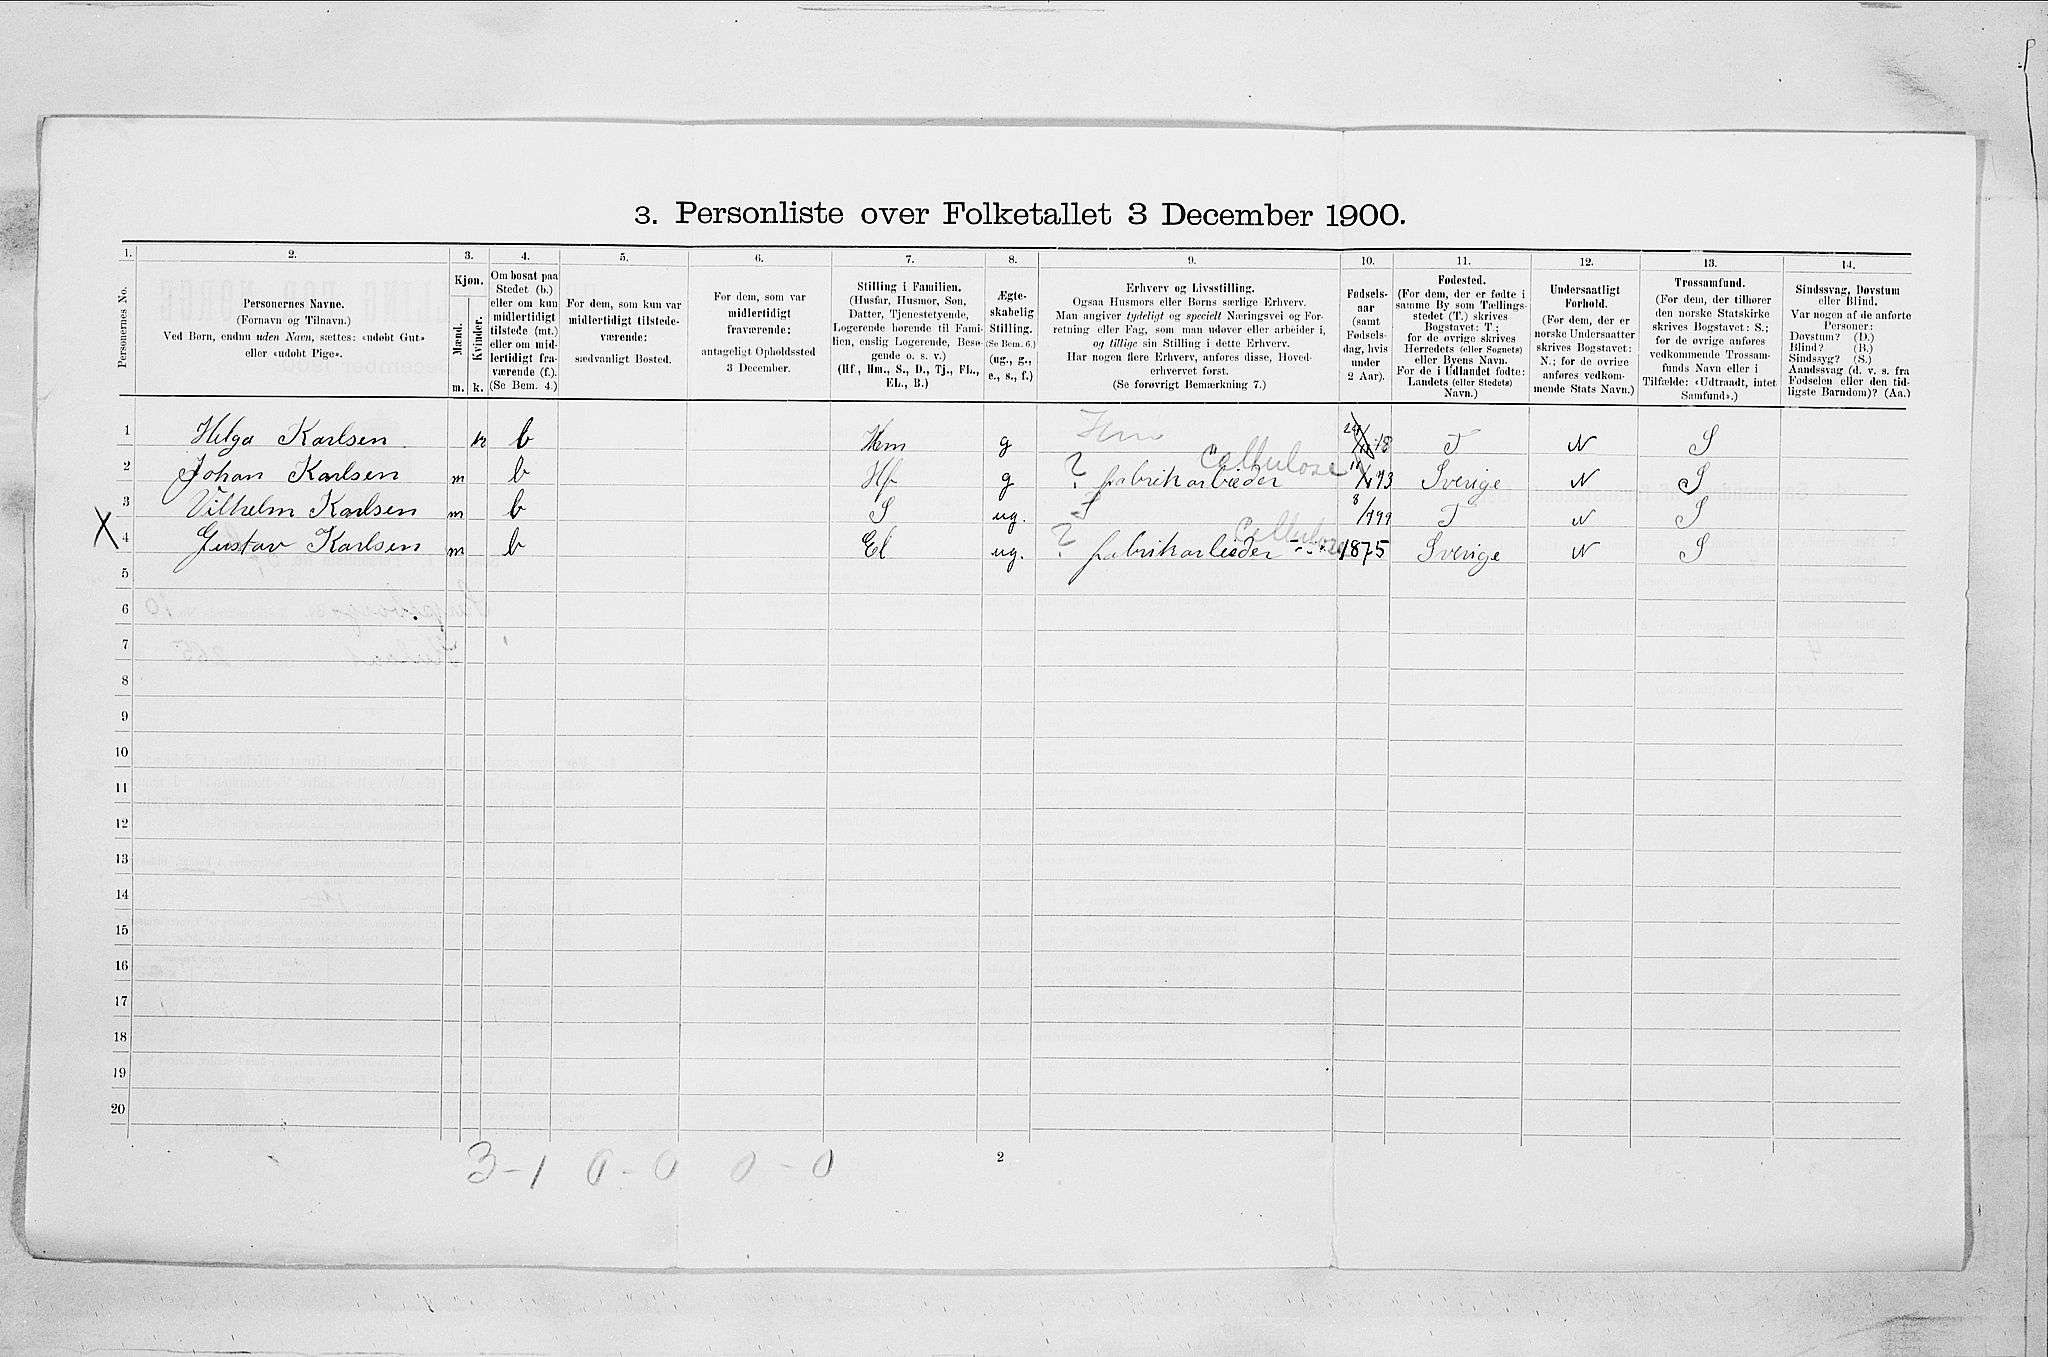 3. Personliste over Folketallet 3 December 1900.
1. 2. 3. 4. 5. 6. 7. 8. 9. 10. 11. 12. 13. 14.
Personernes No.
Personernes Navne.
(Fornavn og Tilnavn.)
Ved Børn, endnu uden Navn, sættes: «udøbt Gut»
eller «udøbt Pige».
Kjøn.
Mænd.
Kvinder.
m. k.
Om bosat paa
Stedet (b.)
eller om kun
midlertidigt
tilstede (mt.)
eller om mid-
lertidigt fra-
værende (f.).
(Se Bem. 4.)
For dem, som kun var
midlertidigt tilstede-
værende:
sædvanligt Bosted.
For dem, som var
midlertidigt
fraværende:
antageligt Opholdssted
3 December.
Stilling i Familien.
(Husfar, Husmor, Søn,
Datter, Tjenestetyende,
Logerende hørende til Fami-
lien, enslig Logerende, Besø-
gende o. s. v.)
(Hf., Hm., S., D., Tj., FL.,
EL., B.)
Ægte-
skabelig
Stilling.
(Se Bem. 6.)
(ug., g.,
e., s., f.)
Erhverv og Livsstilling.
Ogsaa Husmors eller Børns særlige Erhverv.
Man angiver tydeligt og specielt Næringsvei og For-
retning eller Fag, som man udøver eller arbeider i,
og tillige sin Stilling i dette Erhverv.
Har nogen flere Erhverv, anføres disse, Hoved-
erhvervet først.
(Se forøvrigt Bemærkning 7.)
Fødsels-
aar
(samt
Fødsels-
dag, hvis
under
2 Aar).
Fødested.
(For dem, der er fødte i
samme By som Tællings-
stedet (T.) skrives
Bogstavet: T;
for de øvrige skrives
Herredets (eller Sognets)
eller Byens Navn.
For de i Udlandet fødte:
Landets (eller Stedets)
Navn.)
Undersaatligt
Forhold.
(For dem, der er
norske Undersaatter
skrives Bogstavet:
N.; for de øvrige
anføres vedkom-
mende Stats Navn.)
Trossamfund.
(For dem, der tilhører
den norske Statskirke
skrives Bogstavet: S.;
for de øvrige anføres
vedkommende Trossam-
funds Navn eller i
Tilfælde: «Udtraadt, intet
Samfund».)
Sindssvag, Døvstum
eller Blind.
Var nogen af de anførte
Personer:
Døvstum? (D.)
Blind? (B.)
Sindssyg? (S.)
Aandssvag (d. v. s. fra
Fødselen eller den tid-
ligste Barndom)? (Aa.)
1 Helga Karlsen k b Hm g Hm T N S
2 Johan Karlsen m b Hf g ? fabrikarbeider Cellulose Sverige N S
3 Vilhelm Karlsen m b S ug. S T N S
X 4 Gustav Karlsen m b El ug. ? fabrikarbeider Cellulose 1875 Sverige N S
5
6
7
8
9
10
11
12
13
14
15
16
17
18
19
20
3-1 0-0 0-0
2